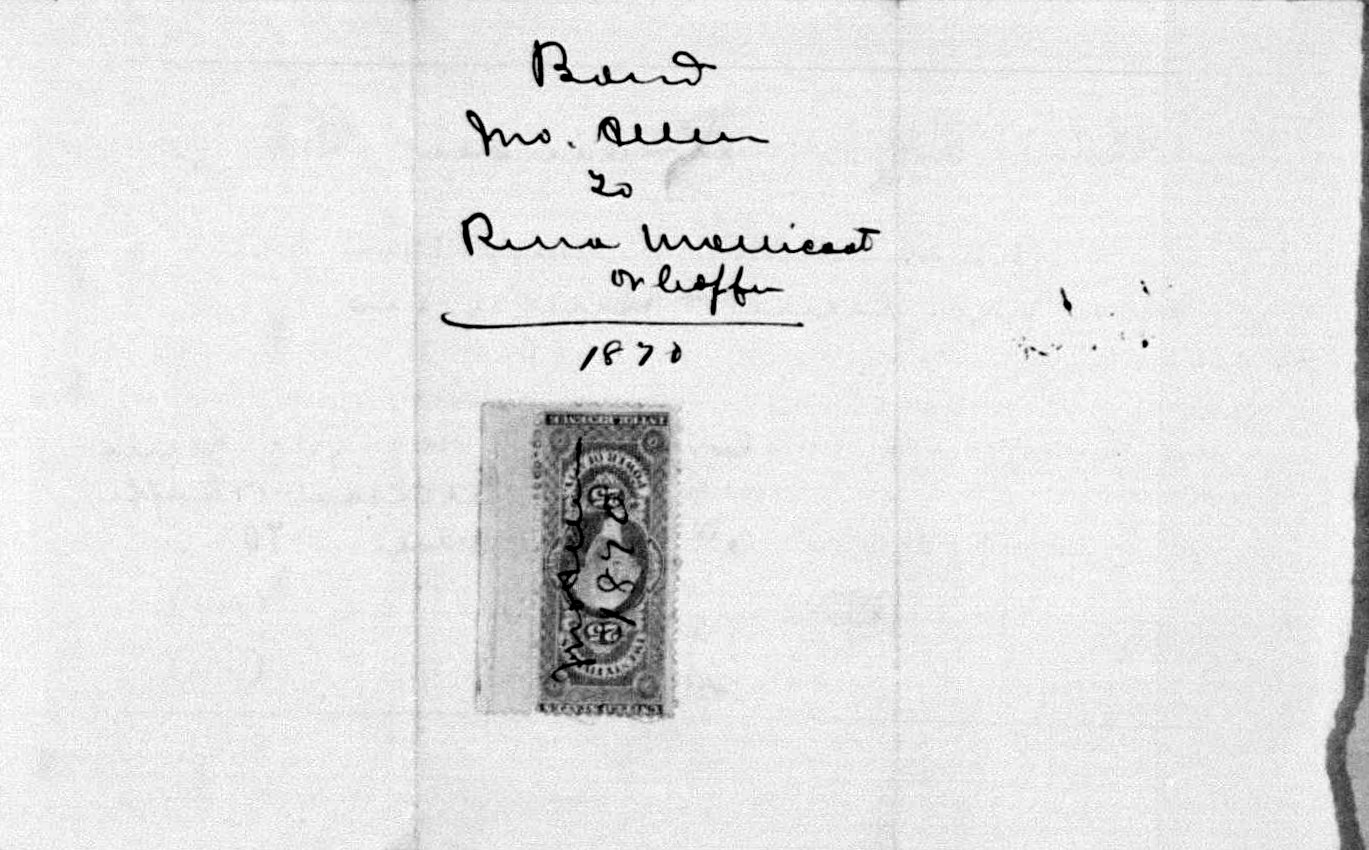 Bond
Jno. Allen
to
Rena Mallicoat
or Coffee
1870
Jno Allen
1870
25
25